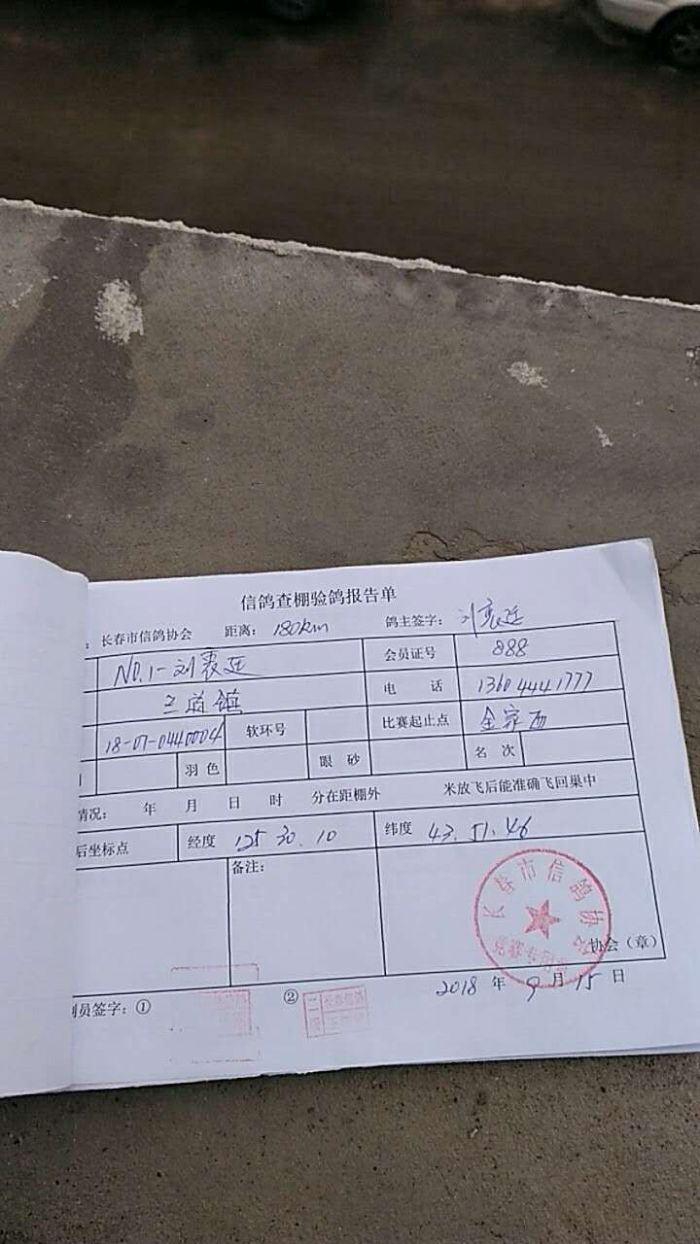 信鸽查棚验鸽报告单
: 长春市信鸽协会 距离: 180km 鸽主签字:
NO.1-刘 廷 会员证号 888
镇 电 话 13604441777
18-07-0440004 软环号 比赛起止点 金家
羽色 眼砂 名次
情况: 年 月 日 时 分在距棚外 米放飞后能准确飞回巢中
后坐标点 经度 125 30.10 纬度 43.51.46
备注:
长春市信鸽协会
协会(章)
2018 年 9 月 15 日
员签字:① ②